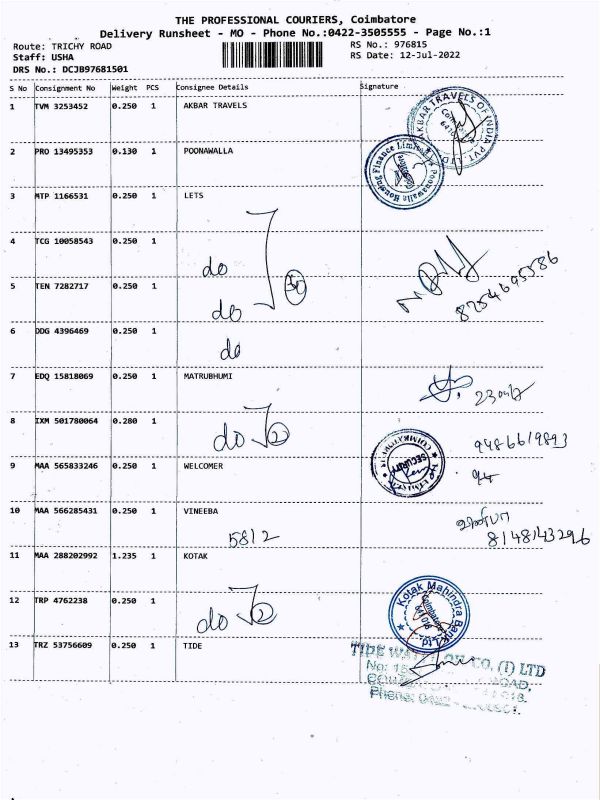 THE PROFESSIONAL COURIERS, Coimbatore
Delivery Runsheet - MO - Phone No.:0422-3505555 - Page No.:1
Route: TRICHY ROAD
Staff: USHA
DRS No.: DCJB97681501
RS No.: 976815
RS Date: 12-Jul-2022
S No Consignment No Weight PCS Consignee Details Signature
1 TVM 3253452 0.250 1 AKBAR TRAVELS
AKBAR TRAVELS OF INDIA PVT LTD
2 PRO 13495353 0.130 1 POONAWALLA
Poonawalla Housing Finance Limited
3 MTP 1166531 0.250 1 LETS
4 TCG 10058543 0.250 1
do
8754695586
5 TEN 7282717 0.250 1
do
6 DDG 4396469 0.250 1
do
7 EDQ 15818069 0.250 1 MATRUBHUMI
8 IXM 501780064 0.280 1
do
9486619893
9 MAA 565833246 0.250 1 WELCOMER
SECURITY
94
10 MAA 566285431 0.250 1 VINEEBA
5812
8148143296
11 MAA 288202992 1.235 1 KOTAK
Kotak Mahindra Bank Ltd
Coimbatore
641 018
12 TRP 4762238 0.250 1
do
13 TRZ 53756609 0.250 1 TIDE
TIDE OIL CO. (I) LTD